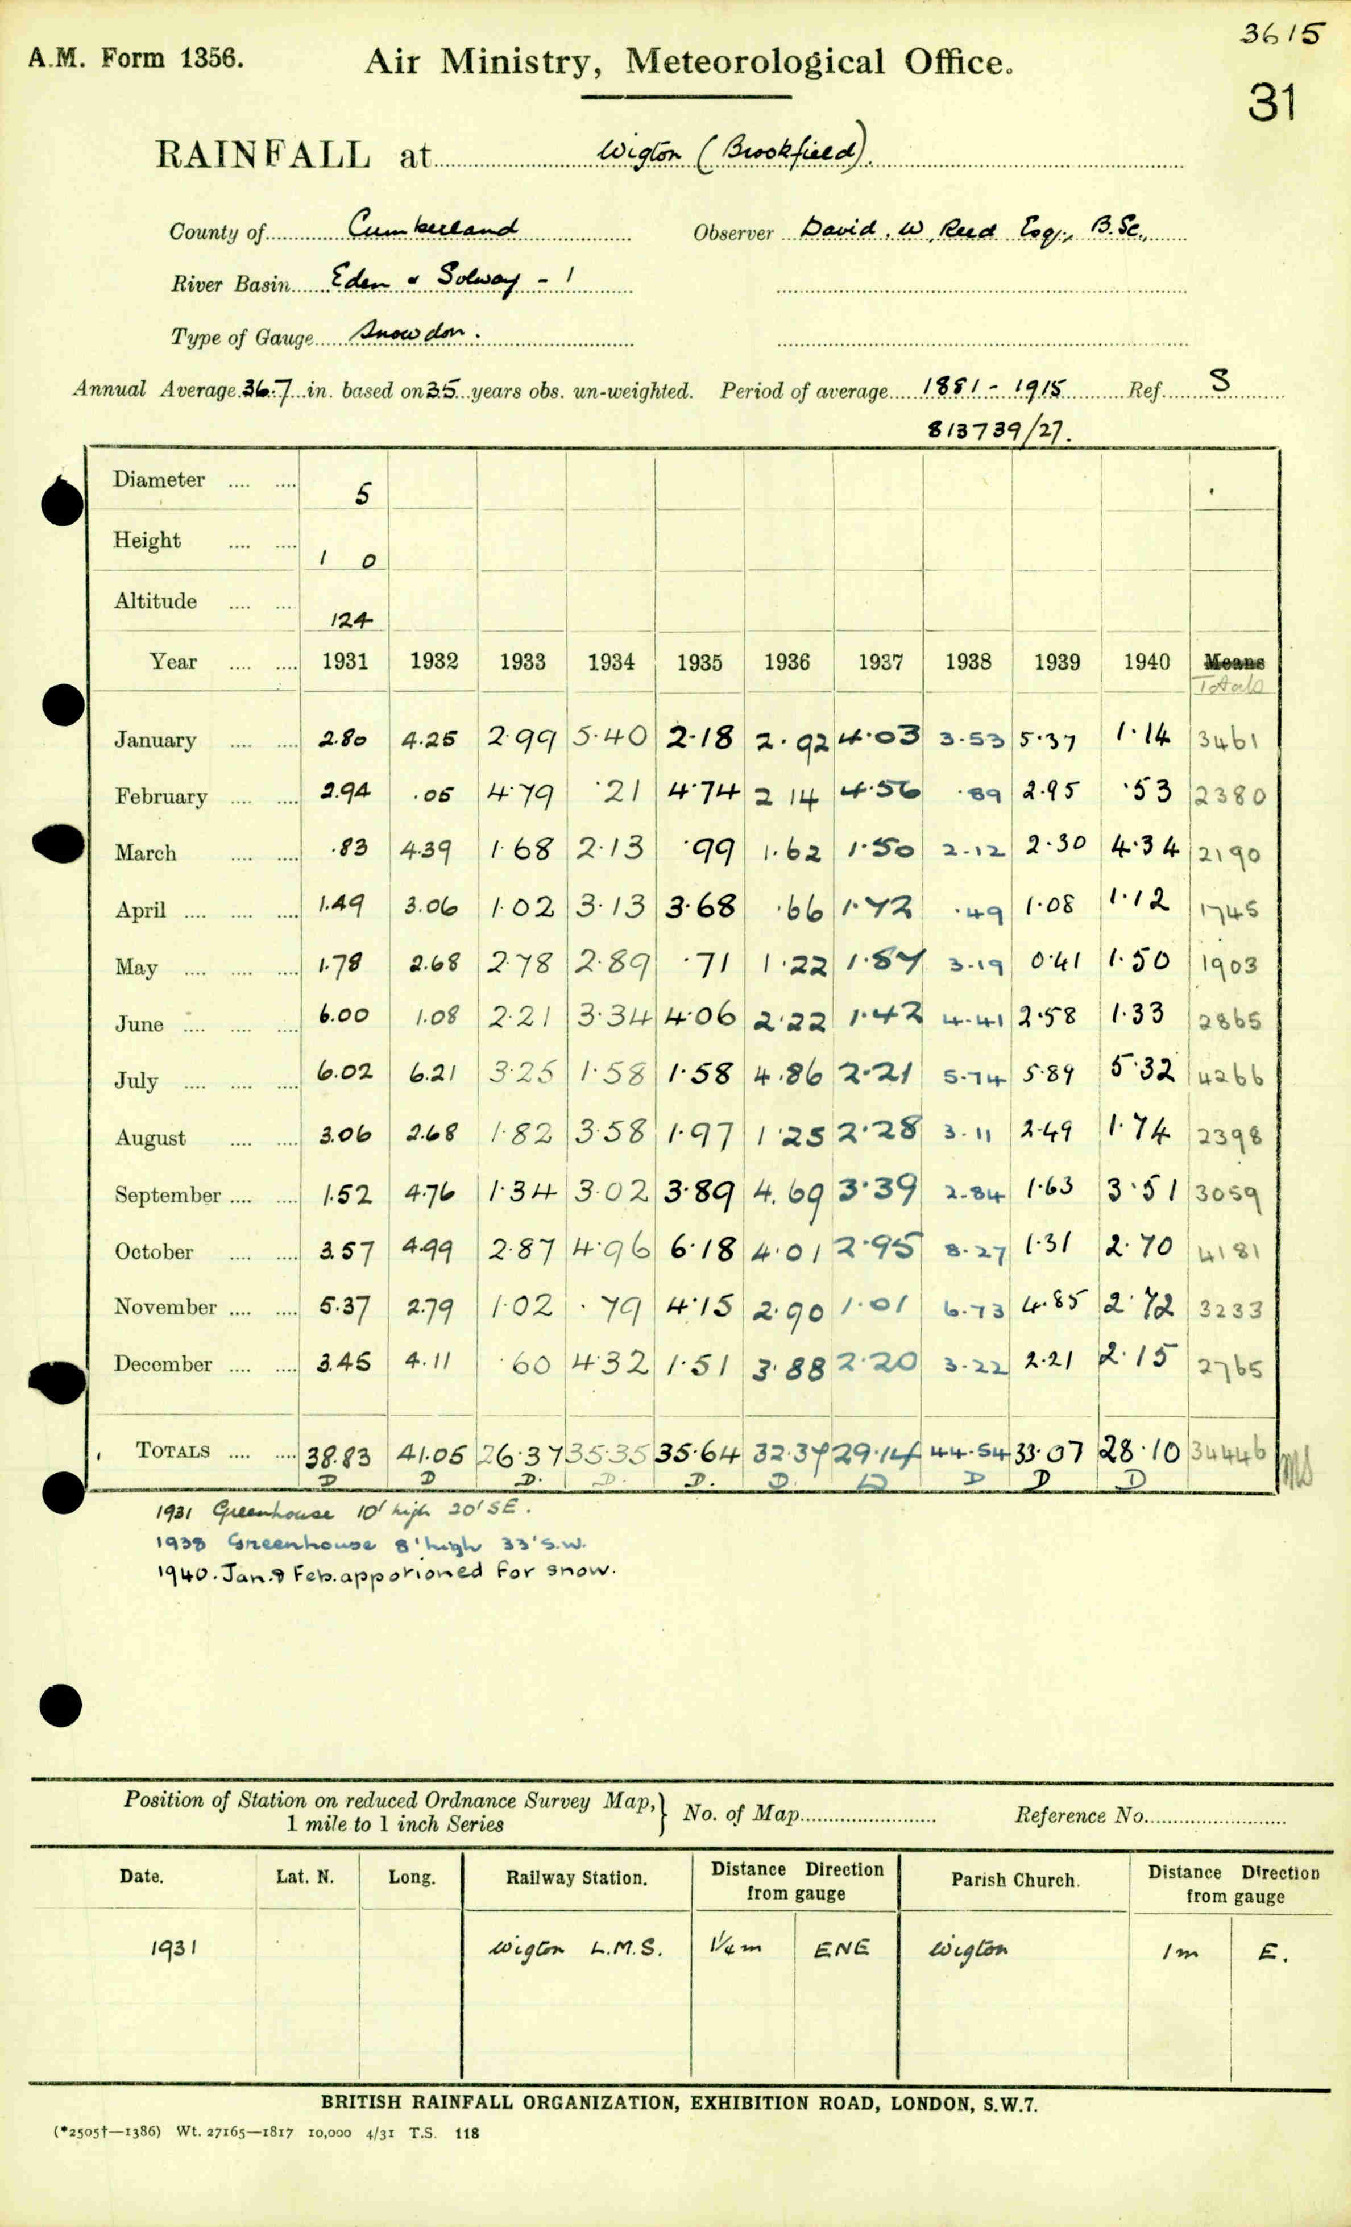 3615
A.M. Form 1356. Air Ministry, Meteorological Office.
31
RAINFALL at Wigton (Brookfield).
County of Cumberland Observer David. W. Reed Esq., B.Sc.,
River Basin Eden & Solway - 1
Type of Gauge Snowdon.
Annual Average 36.7 in. based on 35 years obs. un-weighted. Period of average 1881 - 1915 Ref. S
813739/27.
Diameter .... .... 5
Height .... .... 1 0
Altitude .... .... 124
Year .... .... 1931 1932 1933 1934 1935 1936 1937 1938 1939 1940 Means
Totals
January .... .... 2.80 4.25 2.99 5.40 2.18 2.92 4.03 3.53 5.37 1.14 3461
February .... .... 2.94 .05 4.79 .21 4.74 2 14 4.56 .89 2.95 .53 2380
March .... .... .83 4.39 1.68 2.13 .99 1.62 1.50 2.12 2.30 4.34 2190
April .... .... .... 1.49 3.06 1.02 3.13 3.68 .66 1.72 .49 1.08 1.12 1745
May .... .... .... 1.78 2.68 2.78 2.89 .71 1.22 1.87 3.19 0.41 1.50 1903
June .... .... .... 6.00 1.08 2.21 3.34 4.06 2.22 1.42 4.41 2.58 1.33 2865
July .... .... .... 6.02 6.21 3.25 1.58 1.58 4.86 2.21 5.74 5.89 5.32 4266
August .... .... 3.06 2.68 1.82 3.58 1.97 1.25 2.28 3.11 2.49 1.74 2398
September .... .... 1.52 4.76 1.34 3.02 3.89 4.69 3.39 2.84 1.63 3.51 3059
October .... .... 3.57 4.99 2.87 4.96 6.18 4.01 2.95 8.27 1.31 2.70 4181
November .... .... 5.37 2.79 1.02 .79 4.15 2.90 1.01 6.73 4.85 2.72 3233
December .... .... 3.45 4.11 .60 4.32 1.51 3.88 2.20 3.22 2.21 2.15 2765
TOTALS .... .... 38.83 41.05 26.37 35.35 35.64 32.37 29.14 44.54 33.07 28.10 34446
D D D. D. D. D. D D D D MS
1931 Greenhouse 10' high 20' SE.
1938 Greenhouse 8' high 33' S.W.
1940. Jan. & Feb. apporioned for snow.
Position of Station on reduced Ordnance Survey Map,} No. of Map Reference No.
1 mile to 1 inch Series
Date. Lat. N. Long. Railway Station. Distance Direction from gauge Parish Church. Distance Direction from gauge
1931 Wigton L.M.S. 1/4 m ENE Wigton 1m E.
BRITISH RAINFALL ORGANIZATION, EXHIBITION ROAD, LONDON, S.W.7.
(*2505†—1386) Wt. 27165—1817 10,000 4/31 T.S. 118